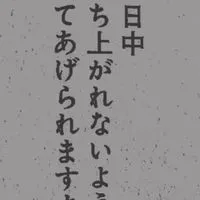 日中
ち上がれないよう
てあげられますよ